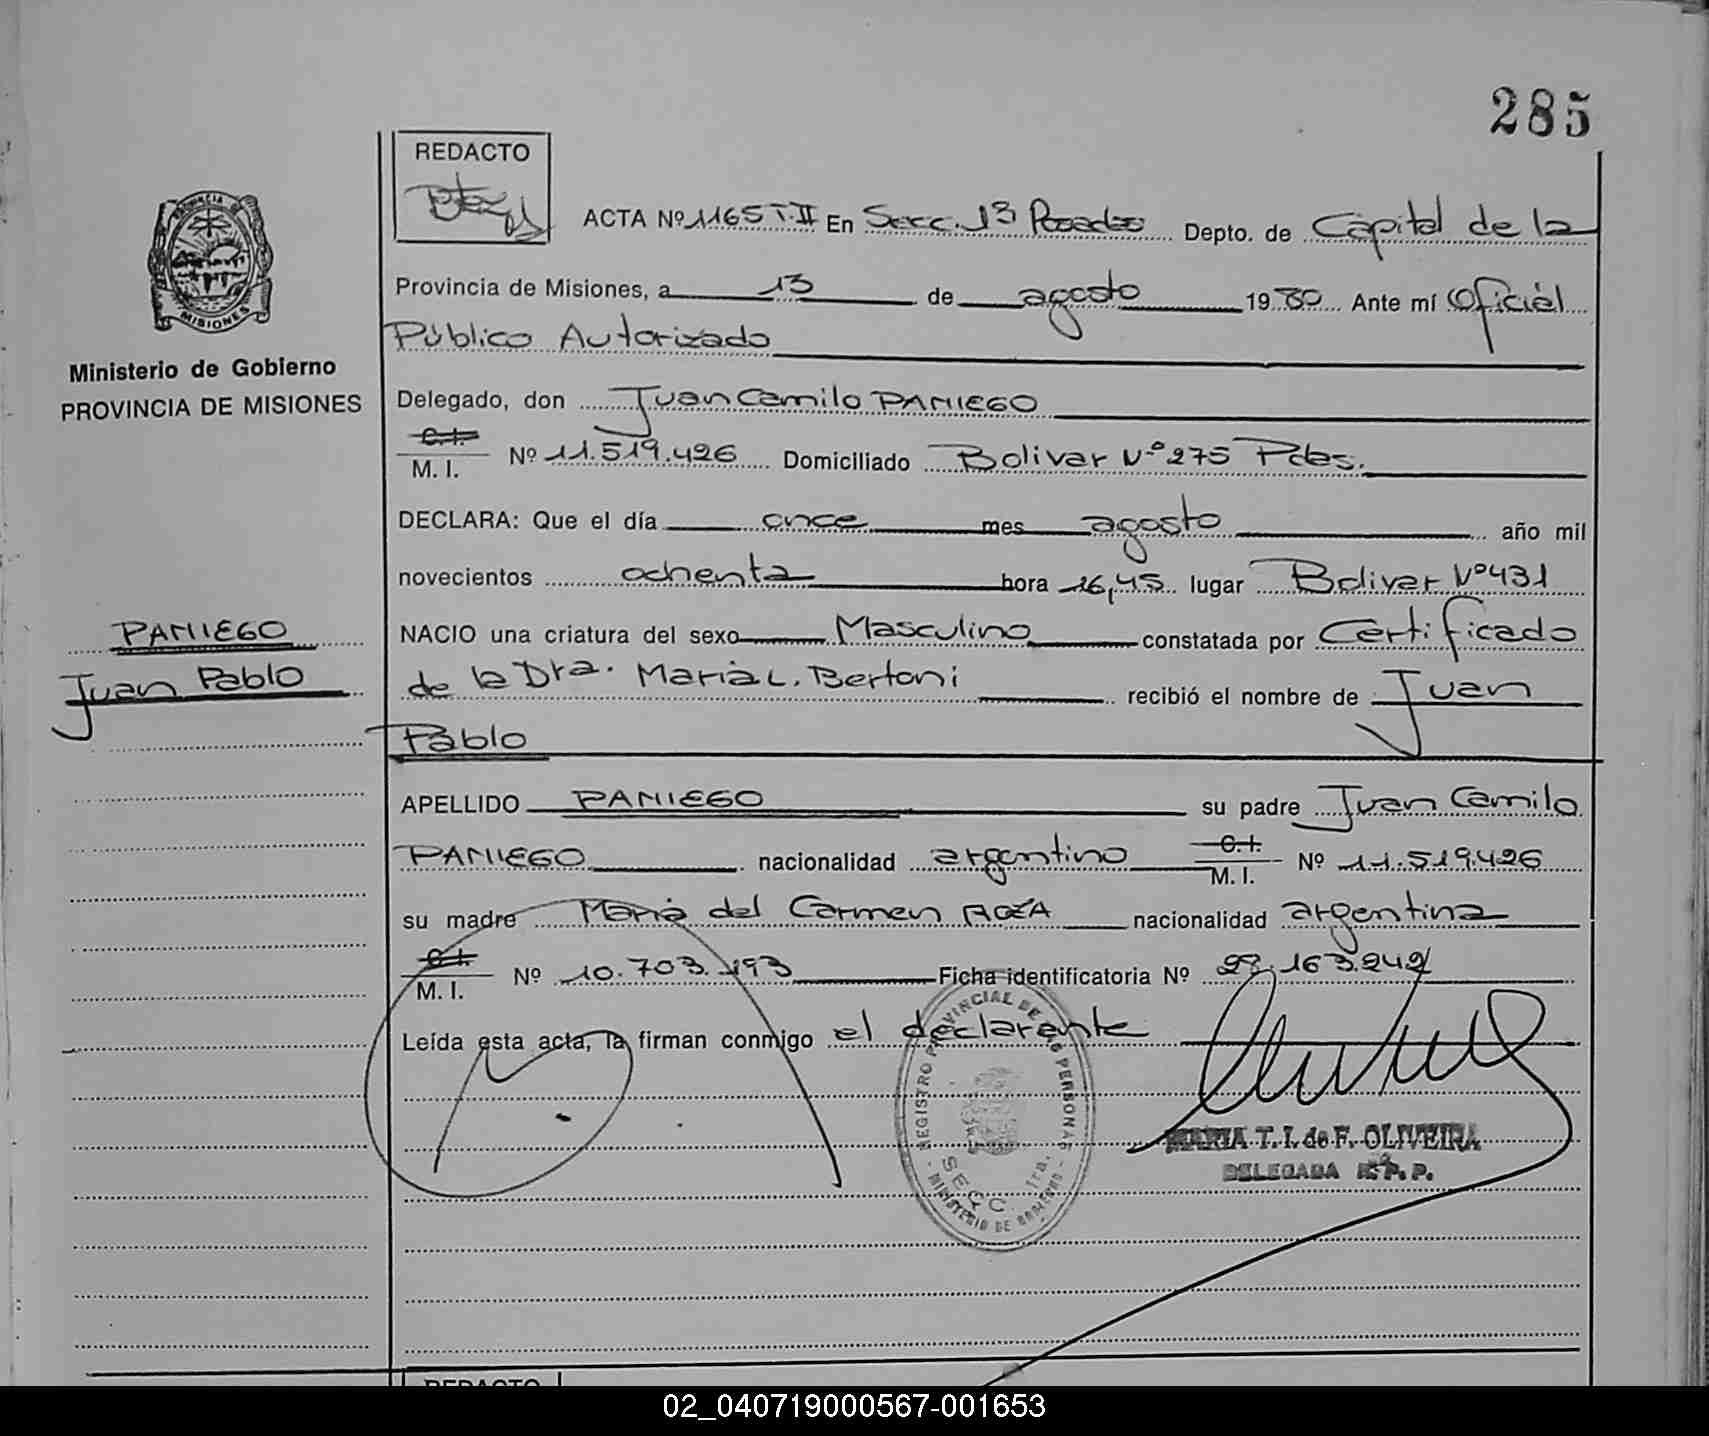 285
REDACTO
ACTA Nº 1165 T.II En Secc. 13 Posadas Depto. de Capital de la
Provincia de Misiones, a 13 de agosto 1980 Ante mí Oficial
Público Autorizado
Ministerio de Gobierno
PROVINCIA DE MISIONES
Delegado, don Juan Camilo PANIEGO
C.I.
M. I. Nº 11.519.426 Domiciliado Bolivar Nº 275 Pdas.
DECLARA: Que el día once mes agosto año mil
novecientos ochenta hora 16,45 lugar Bolivar Nº 431
PANIEGO
Juan Pablo
NACIO una criatura del sexo Masculino constatada por Certificado
de la Dra. Maria L. Bertoni recibió el nombre de Juan
Pablo
APELLIDO PANIEGO su padre Juan Camilo
PANIEGO nacionalidad argentino C.I. M. I. Nº 11.519.426
su madre Maria del Carmen nacionalidad argentina
C.I.
M. I. Nº 10.703.193 Ficha identificatoria Nº 28.163.242
Leída esta acta, la firman conmigo el declarante
REGISTRO PROVINCIAL DE LAS PERSONAS
SECC. 1ra.
MINISTERIO DE GOBIERNO
MARIA T. I. de F. OLIVEIRA
DELEGADA R. P. P.
REDACTO
02_040719000567-001653